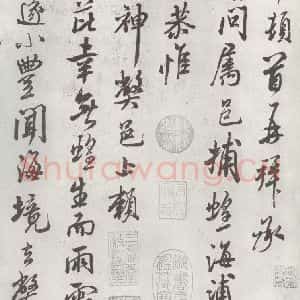 頓首再拜承
問屬邑捕蝗海浦
恭惟
神獘邑上賴
芘幸無蝗生而雨
遂小豐聞海境去
Shufawang.Cn